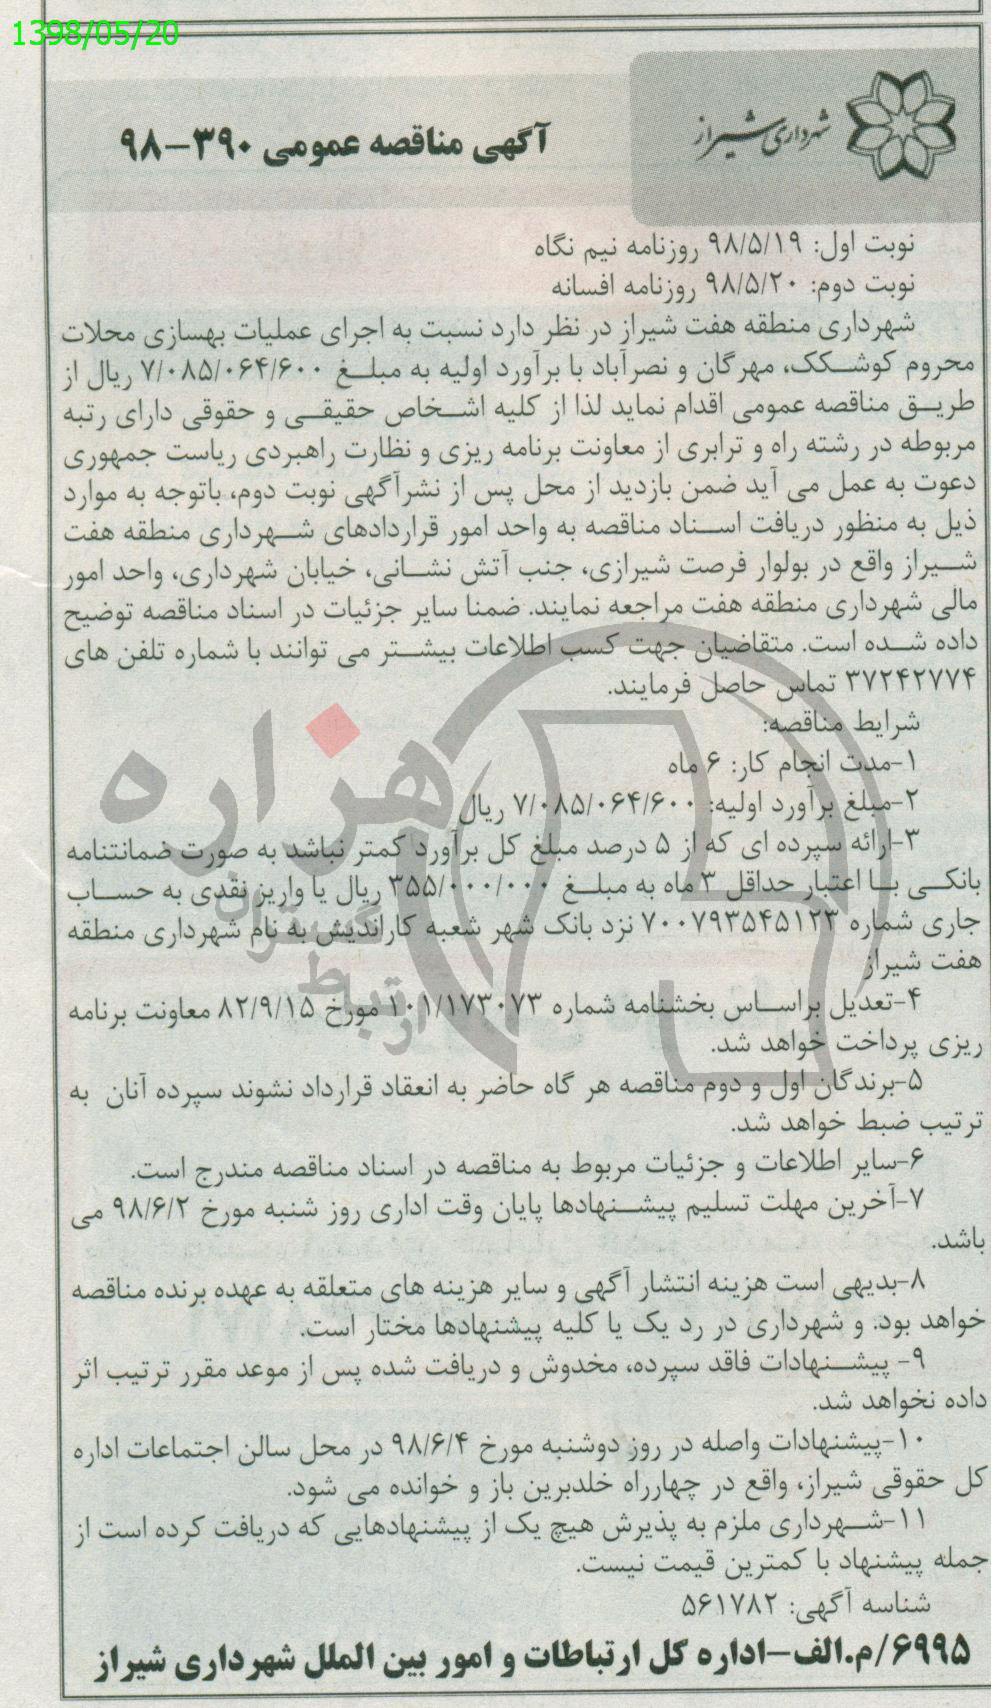 1398/05/20
شهرداری شیراز
آگهی مناقصه عمومی ۳۹۰-۹۸
نوبت اول: ۹۸/۵/۱۹ روزنامه نیم نگاه
نوبت دوم: ۹۸/۵/۲۰ روزنامه افسانه
شهرداری منطقه هفت شیراز در نظر دارد نسبت به اجرای عملیات بهسازی محلات
محروم کوشکک، مهرگان و نصرآباد با برآورد اولیه به مبلغ ۷/۰۸۵/۰۶۴/۶۰۰ ریال از
طریق مناقصه عمومی اقدام نماید لذا از کلیه اشخاص حقیقی و حقوقی دارای رتبه
مربوطه در رشته راه و ترابری از معاونت برنامه ریزی و نظارت راهبردی ریاست جمهوری
دعوت به عمل می آید ضمن بازدید از محل پس از نشرآگهی نوبت دوم، باتوجه به موارد
ذیل به منظور دریافت اسناد مناقصه به واحد امور قراردادهای شهرداری منطقه هفت
شیراز واقع در بولوار فرصت شیرازی، جنب آتش نشانی، خیابان شهرداری، واحد امور
مالی شهرداری منطقه هفت مراجعه نمایند. ضمنا سایر جزئیات در اسناد مناقصه توضیح
داده شده است. متقاضیان جهت کسب اطلاعات بیشتر می توانند با شماره تلفن های
۳۷۲۴۲۷۷۴ تماس حاصل فرمایند.
شرایط مناقصه:
۱-مدت انجام کار: ۶ ماه
۲-مبلغ برآورد اولیه: ۷/۰۸۵/۰۶۴/۶۰۰ ریال
۳-ارائه سپرده ای که از ۵ درصد مبلغ کل برآورد کمتر نباشد به صورت ضمانتنامه
بانکی با اعتبار حداقل ۳ ماه به مبلغ ۳۵۵/۰۰۰/۰۰۰ ریال یا واریز نقدی به حساب
جاری شماره ۷۰۰۷۹۳۵۴۵۱۲۳ نزد بانک شهر شعبه کاراندیش به نام شهرداری منطقه
هفت شیراز
۴-تعدیل براساس بخشنامه شماره ۱۰۱/۱۷۳۰۷۳ مورخ ۸۲/۹/۱۵ معاونت برنامه
ریزی پرداخت خواهد شد.
۵-برندگان اول و دوم مناقصه هر گاه حاضر به انعقاد قرارداد نشوند سپرده آنان به
ترتیب ضبط خواهد شد.
۶-سایر اطلاعات و جزئیات مربوط به مناقصه در اسناد مناقصه مندرج است.
۷-آخرین مهلت تسلیم پیشنهادها پایان وقت اداری روز شنبه مورخ ۹۸/۶/۲ می
باشد.
۸-بدیهی است هزینه انتشار آگهی و سایر هزینه های متعلقه به عهده برنده مناقصه
خواهد بود. و شهرداری در رد یک یا کلیه پیشنهادها مختار است.
۹- پیشنهادات فاقد سپرده، مخدوش و دریافت شده پس از موعد مقرر ترتیب اثر
داده نخواهد شد.
۱۰-پیشنهادات واصله در روز دوشنبه مورخ ۹۸/۶/۴ در محل سالن اجتماعات اداره
کل حقوقی شیراز، واقع در چهارراه خلدبرین باز و خوانده می شود.
۱۱-شهرداری ملزم به پذیرش هیچ یک از پیشنهادهایی که دریافت کرده است از
جمله پیشنهاد با کمترین قیمت نیست.
شناسه آگهی: ۵۶۱۷۸۲
۶۹۹۵/م.الف-اداره کل ارتباطات و امور بین الملل شهرداری شیراز
هزاره
ارتباط
گستران